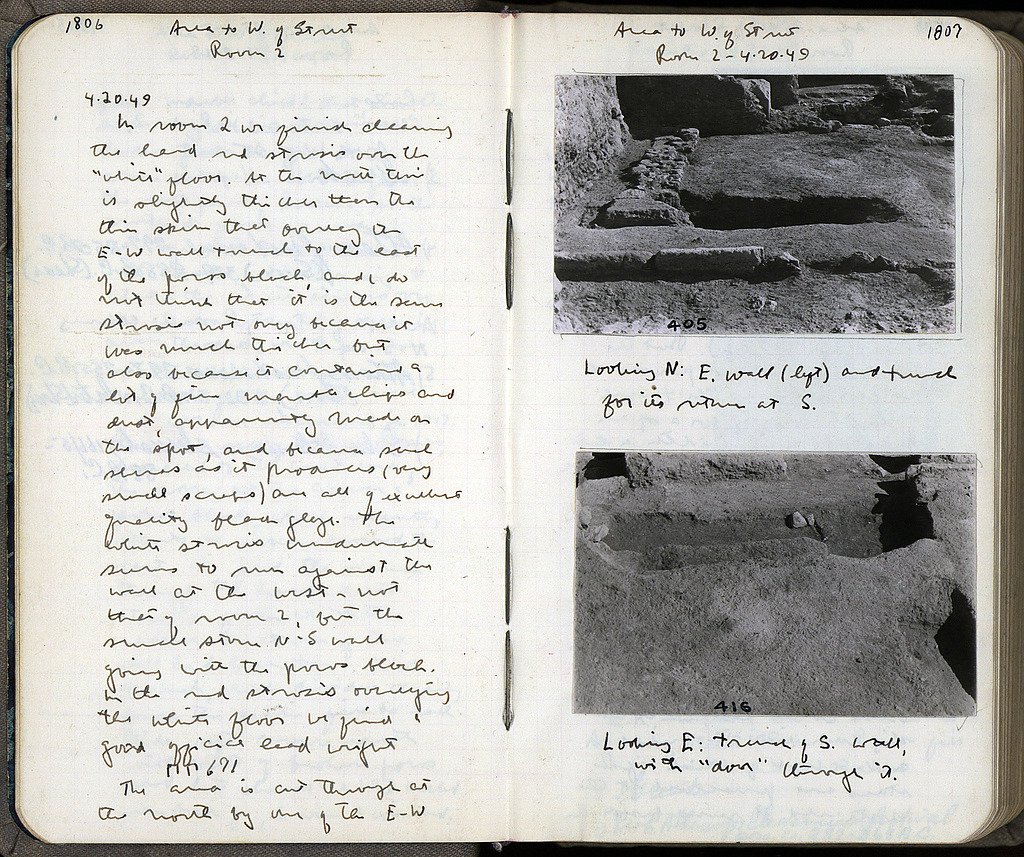 1806
Area to W. of Street
Room 2
4.20.49
In room 2 we finish cleaning
the hard red strosis over the
"white" floor. At the north this
is slightly thicker than the
thin skin that overlay the
E-W wall trench to the east
of the poros block, and I do
not think that it is the same
strosis not only because it
was much thicker but
also because it contained a
lot of fine marble chips and
dust, apparently made on
the spot, and because such
sherds as it produces (very
small scraps) are all of excellent
quality black glaze. The
white strosis underneath
seems to run against the
wall at the west - not
that of room 2, but the
small stone N-S wall
going with the poros block.
In the red strosis overlying
the white floor we find a
good official lead weight
671
The area is cut through at
the north by one of the E-W
Area to W. of Street
1807
Room 2 - 4.20.49
405
Looking N: E. wall (left) and trench
for its return at S.
416
Looking E: trench of S. wall,
with "door" through it.